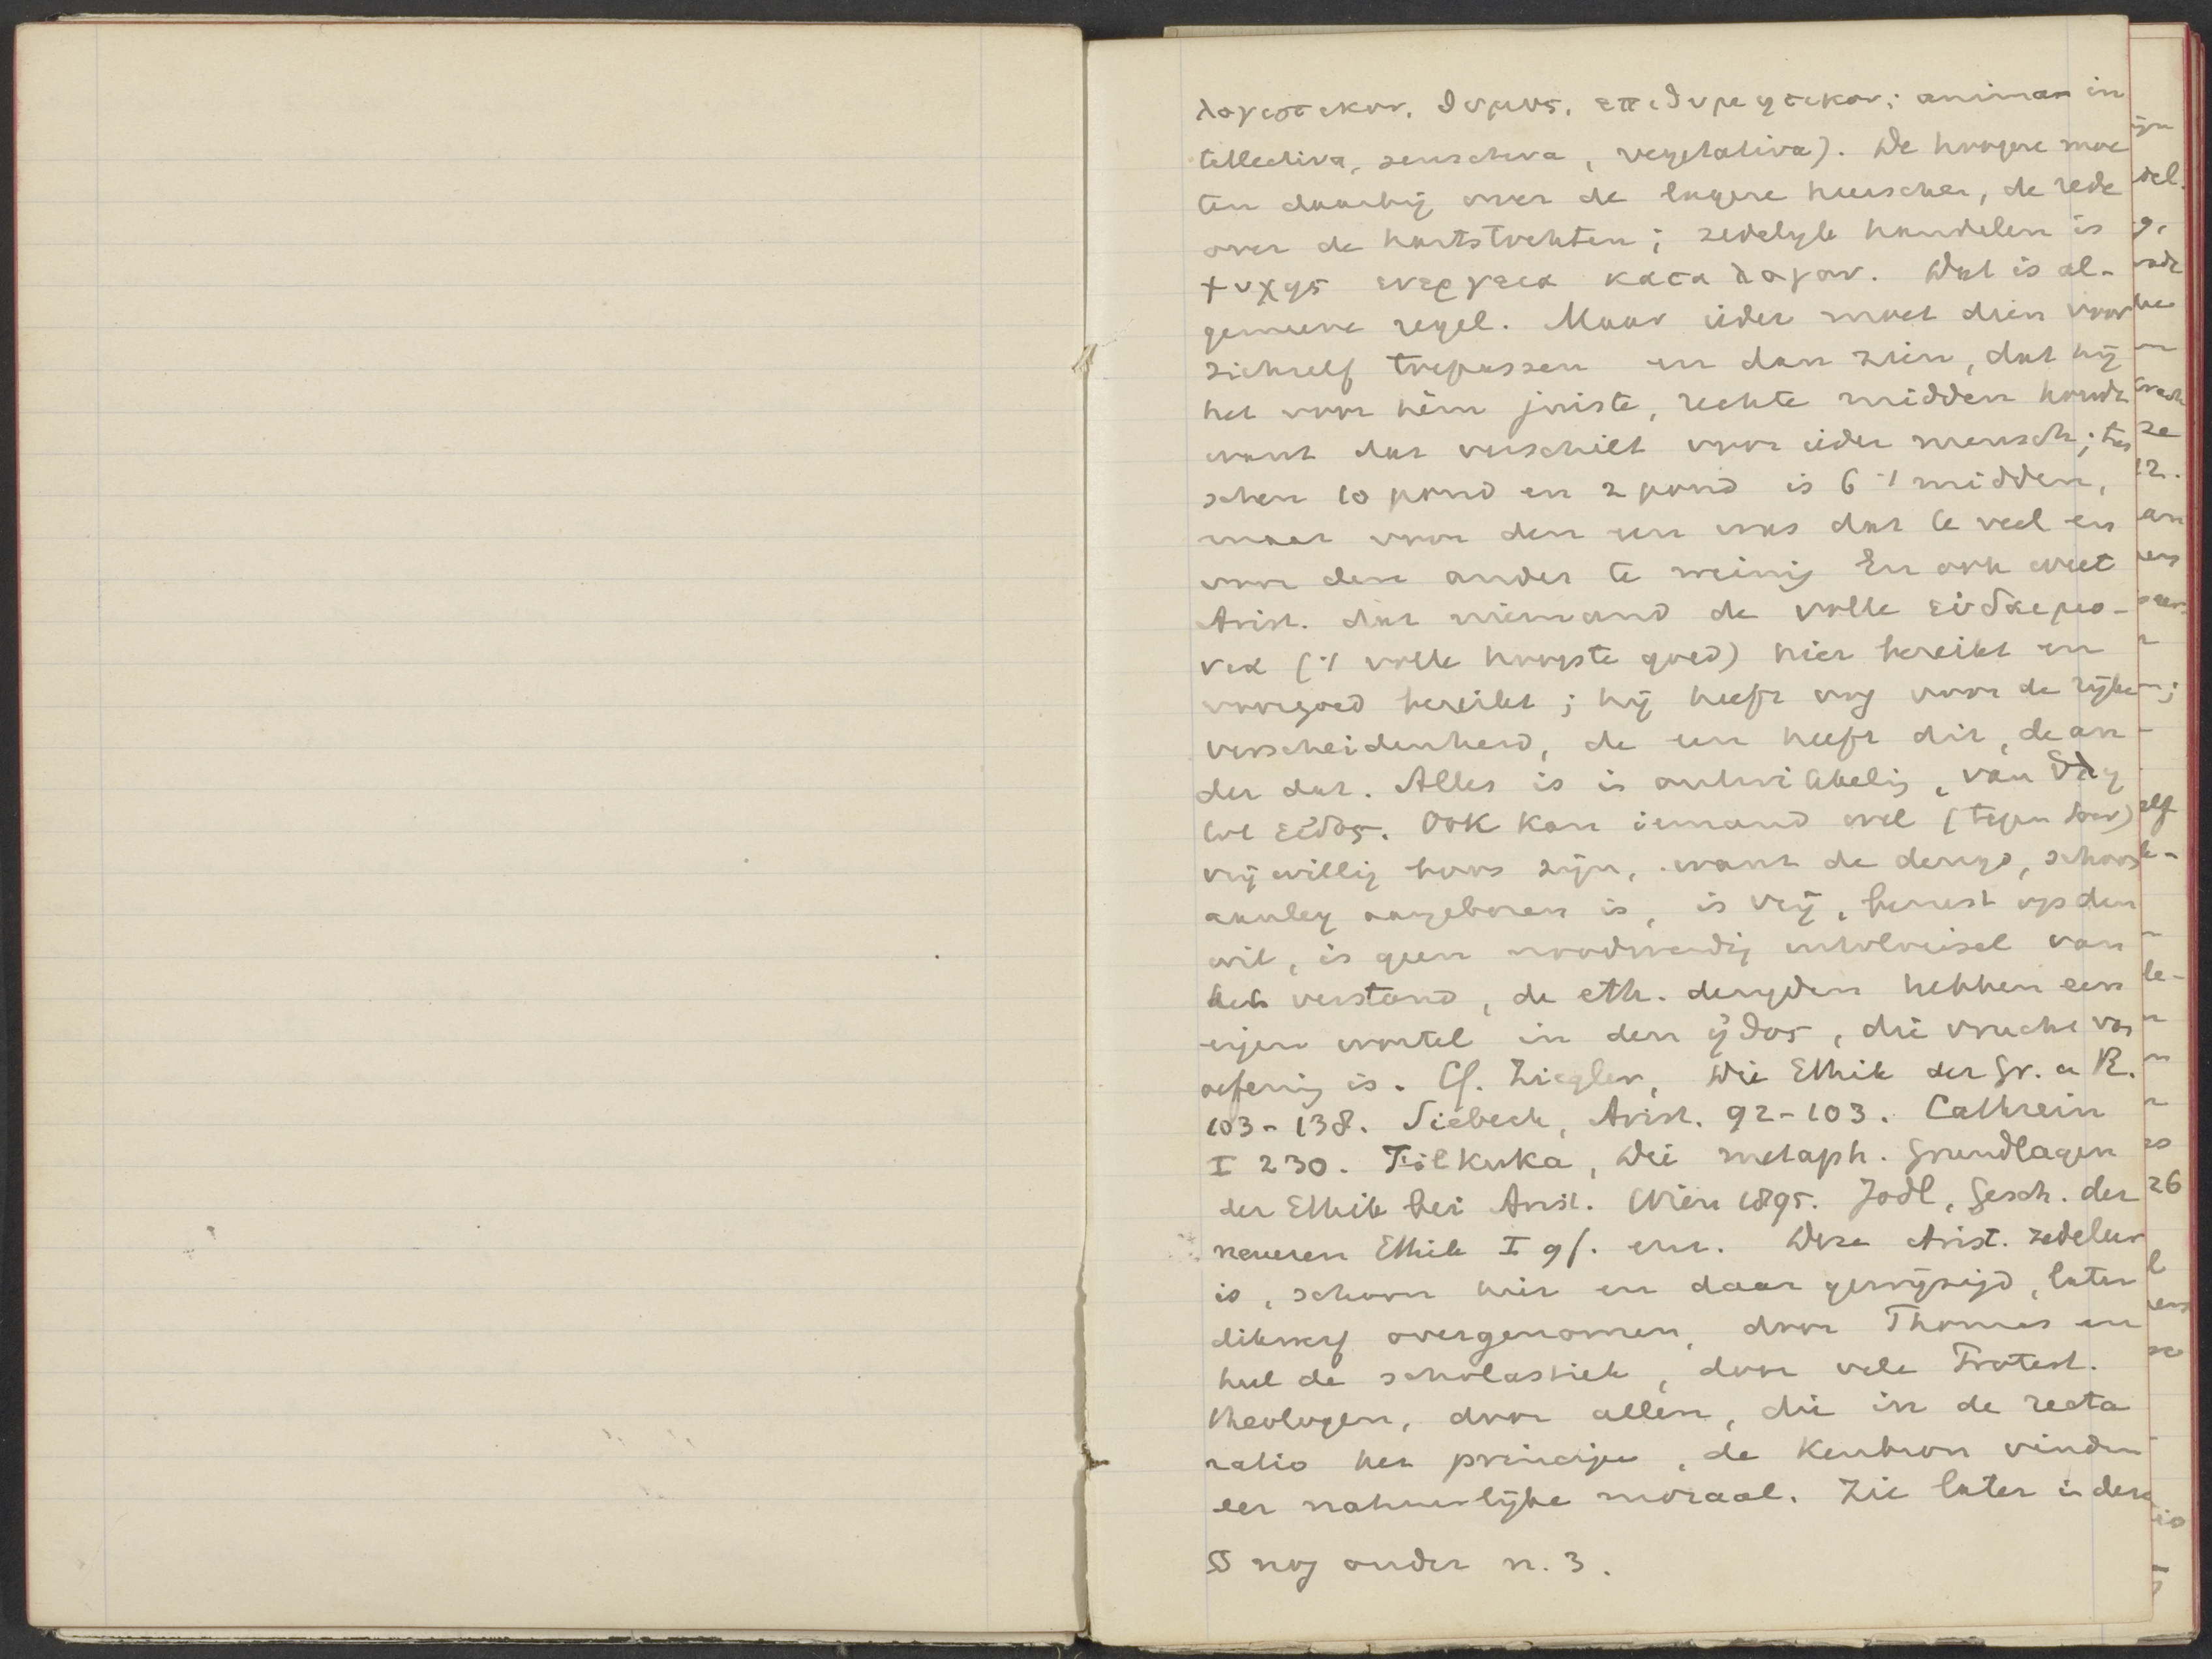 λογιστικον, θυμος, επιθυμητικον; animan in
tellectiva, sensitiva, vegetativa). De hoogere moe
ten daarbij over de lagere heerschen, de rede
over de hartstochten; zedelijk handelen is
ψυχης ενεργεια κατα λογον. Dat is al-
gemeene regel. Maar ieder moet dien voor
zichzelf toepassen en dan zien, dat hij
het voor hèm juiste, rechte midden houdt
want dat verschilt voor ieder mensch; tus
schen 10 pond en 2 pond is 6 ·/ midden,
maar voor den een was dat te veel en
voor den ander te weinig En ook weet
Arist. dat niemand de volle εὐδαιμο-
νια (·/ volle hoogste goed) hier bereikt en
voorgoed bereikt; hij heeft oog voor de rijke
verscheidenheid, de een heeft dit, de an
der dat. Alles is in ontwikkeling, van ὕλη
tot εἶδος. Ook kan iemand wel (tegen Socr)
vrijwillig boos zijn, want de deugd, schoon
aanleg aangeboren is, is vrij, berust op den
wil, is geen noodwendig uitvloeisel van
het verstand, de eth. deugden hebben een
eigen wortel in den ἠθος, die vrucht van
oefening is. Cf. Ziegler, Die Ethik der Gr. u R.
103-138. Siebeck, Arist. 92-103. Cathrein
I 230. Filkuka, Die metaph. Grundlagen
der Ethik bei Arist. Wien 1895. Jodl, Gesch. der
neueren Ethik I 9f. enz. Deze Arist. zedeleer
is, schoon hier en daar gewijzigd, later
dikwerf overgenomen, door Thomas en
heel de scholastiek, door vele Protest.
theologen, door allen, die in de recta
ratio het principe, de kenbron vinden
eer natuurlijke moraal. Zie later in deze
§ nog onder n. 3.